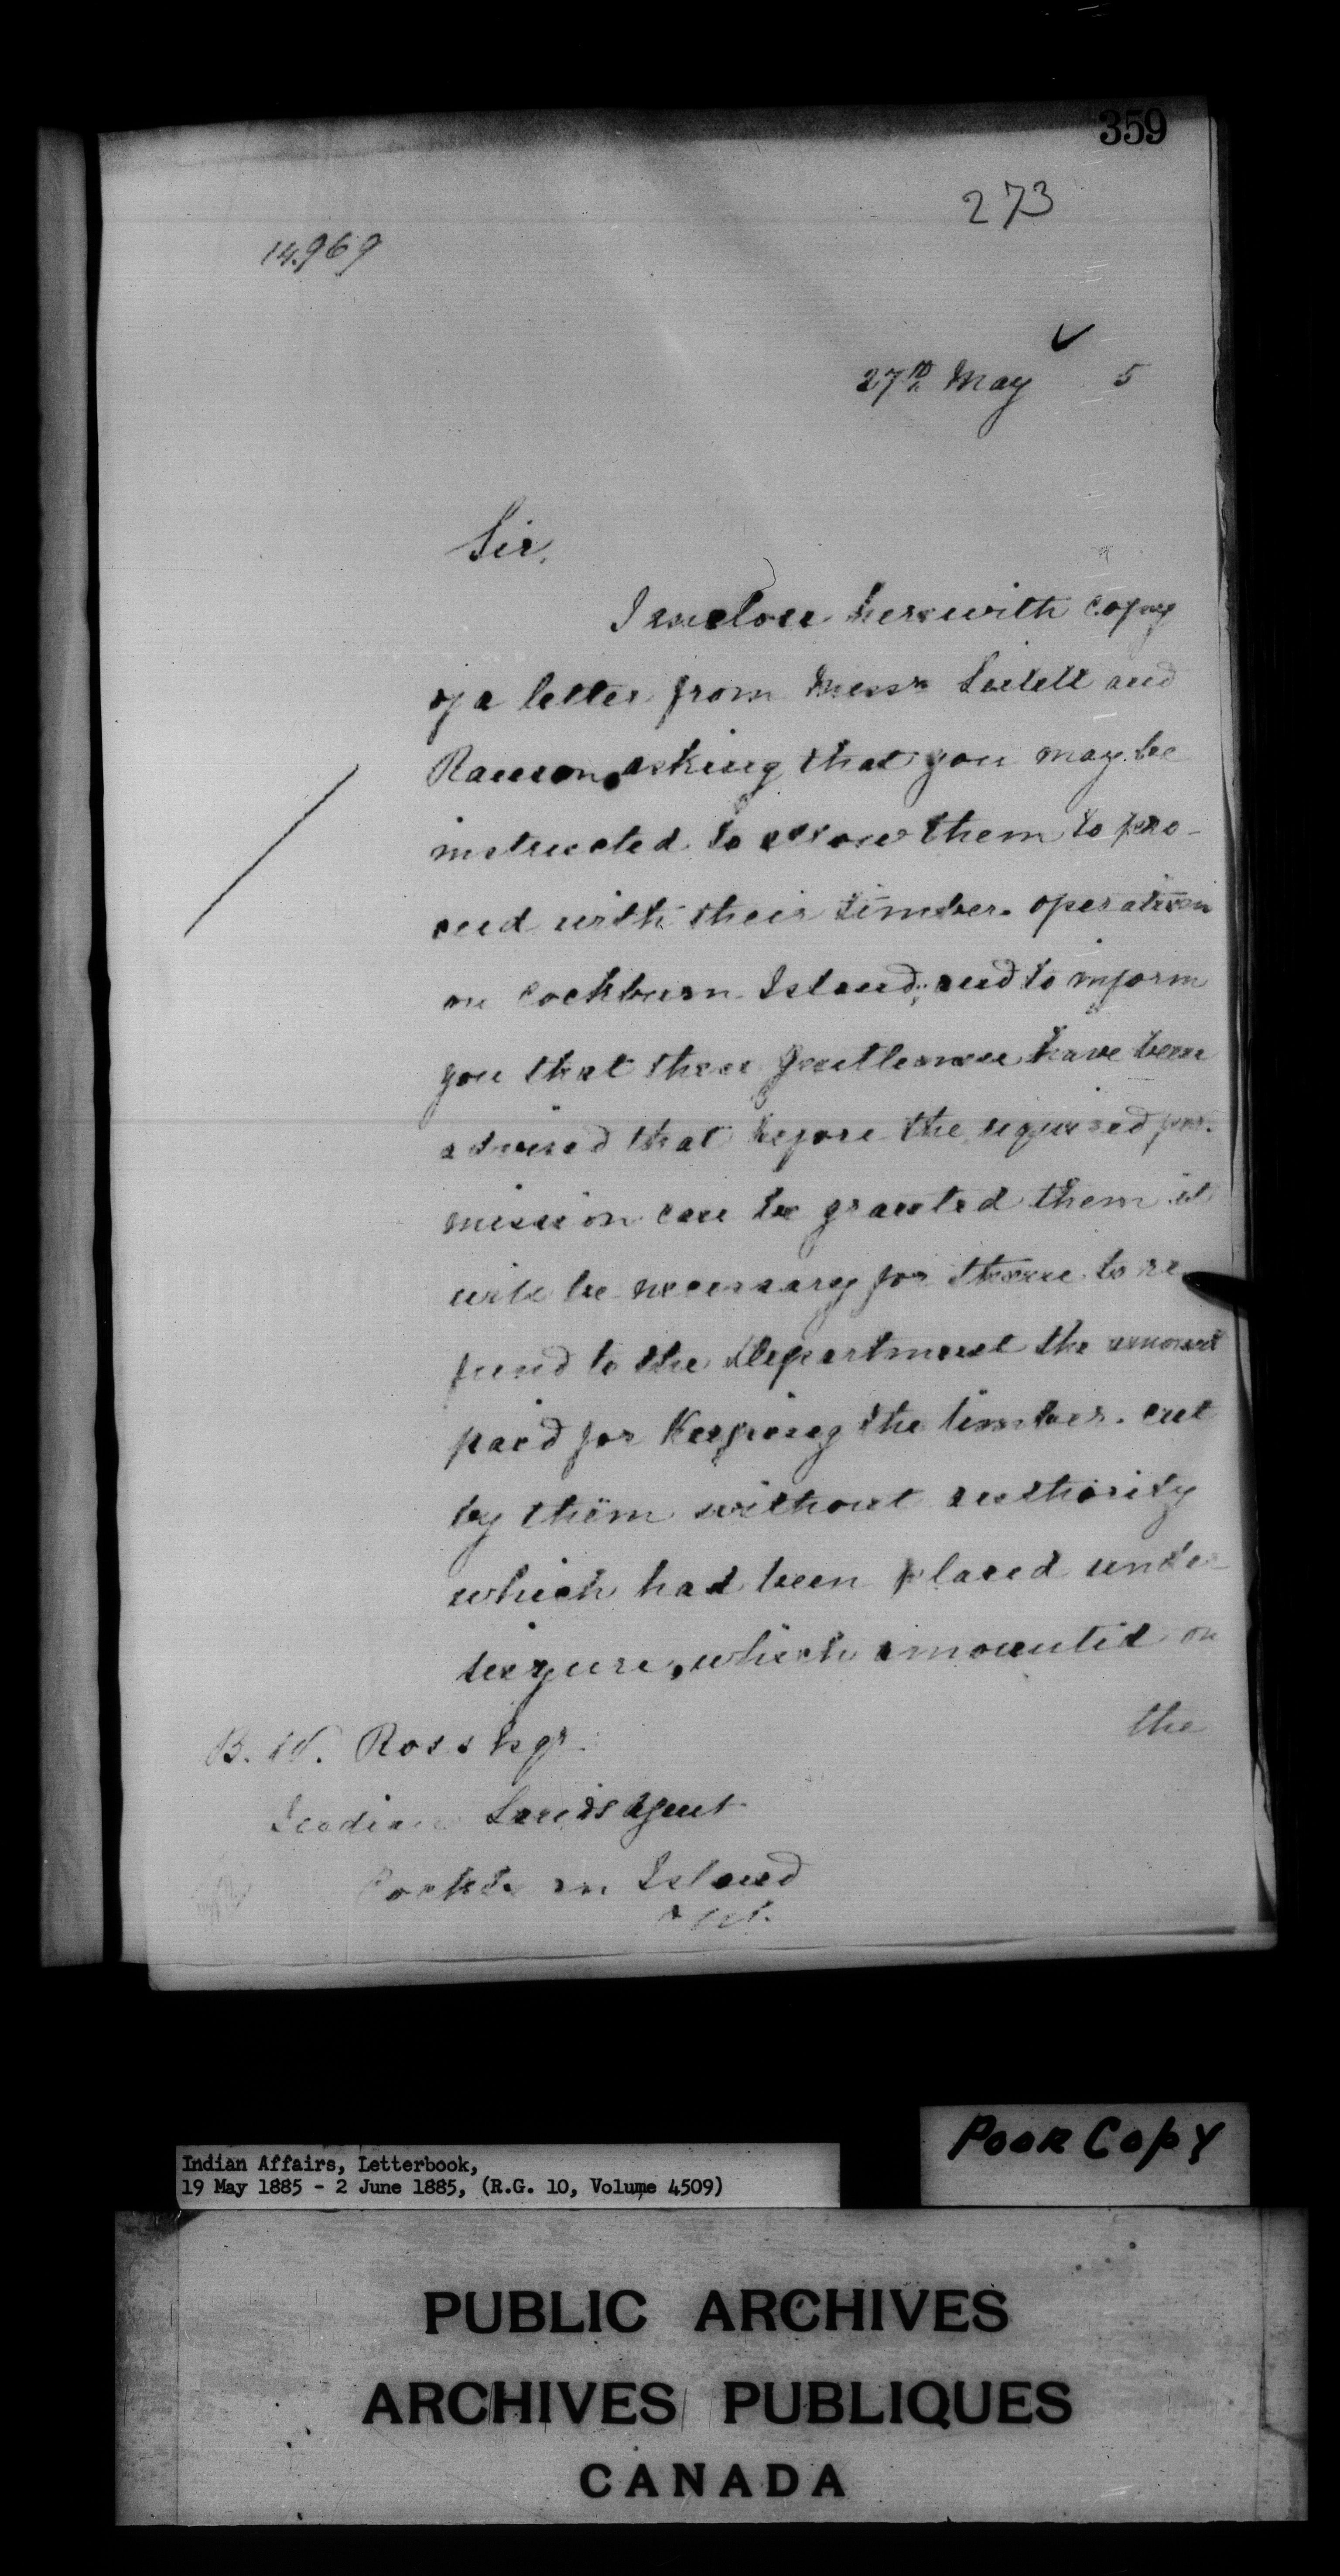 359
273
14.969
27th May 5
Sir,
I enclose herewith copy
of a letter from Messrs and
asking that you may be
instructed to allow them to pro-
ceed with their timber operations
on Cockburn Island; and to inform
you that these gentlemen have been
advised that before the required per-
mission can be granted them it
will be necessary for them to re
fund to the Department the amount
paid for keeping the timber cut
by them without authority
which had been placed under
seizure, which amounted on
the
B. W. Ross Esqr.
Indian Lands Agent
Cockburn Island
Ont.
Poor Copy
Indian Affairs, Letterbook,
19 May 1885 - 2 June 1885, (R.G. 10, Volume 4509)
PUBLIC ARCHIVES
ARCHIVES PUBLIQUES
CANADA